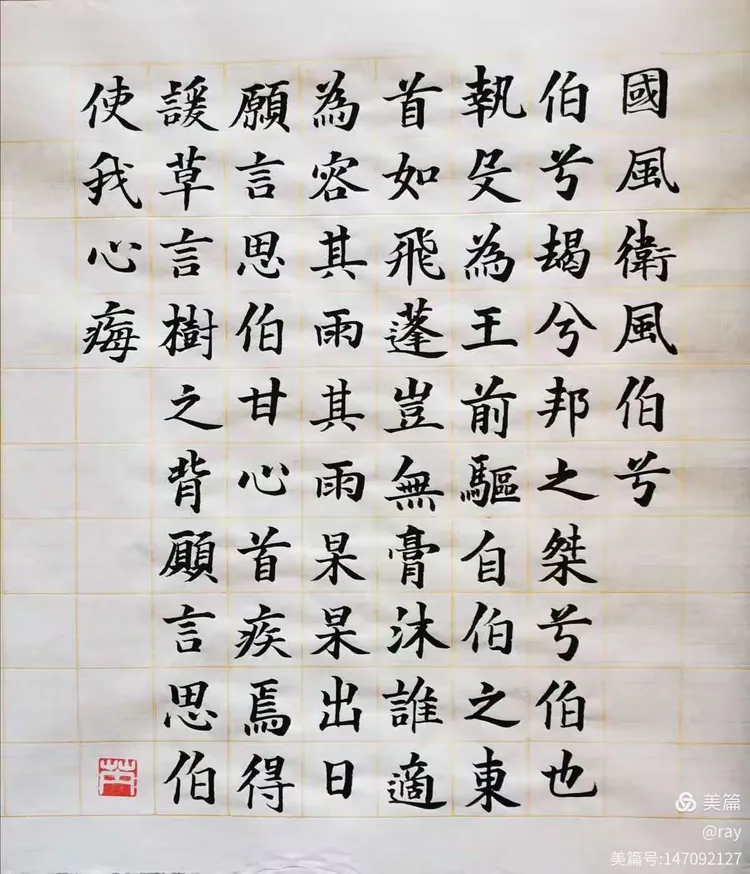 國風衛風伯兮
伯兮朅兮邦之桀兮伯也
執殳為王前驅自伯之東
首如飛蓬豈無膏沐誰適
為容其雨其雨杲杲出日
願言思伯甘心首疾焉得
諼草言樹之背願言思伯
使我心痗
美篇
@ray
美篇号:147092127